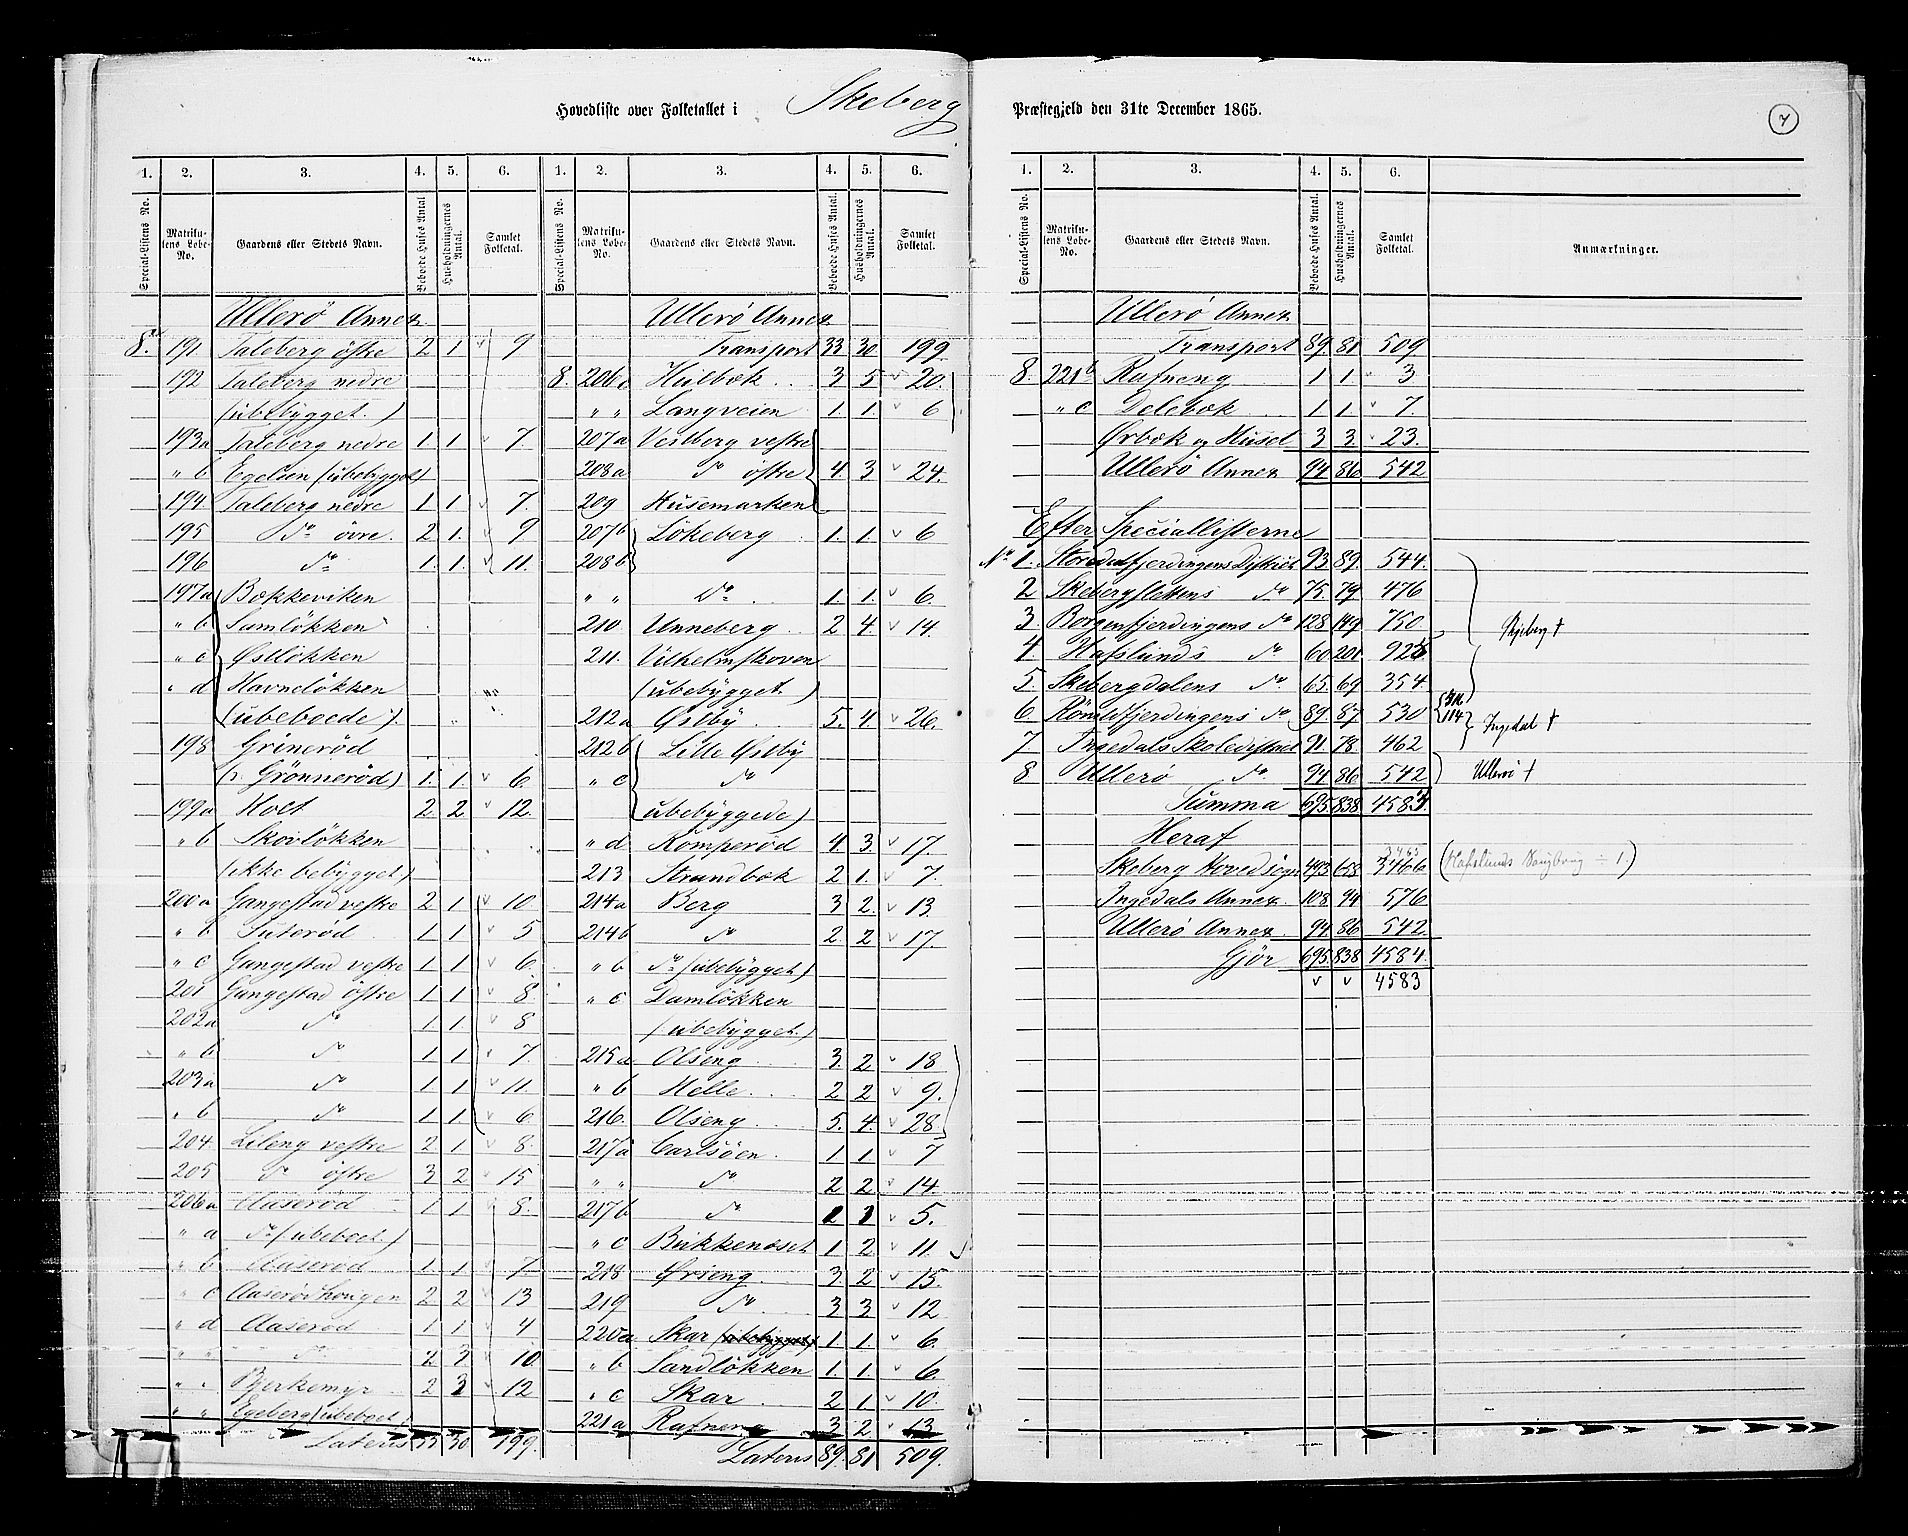 Hovedliste over Folketallet i Skeberg Præstegjeld den 31te December 1865.
7
1. 2. 3. 4. 5. 6. 1. 2. 3. 4. 5. 6.
Special-Listens No. Matrikulens Løbe-No. Gaardens eller Stedets Navn. Beboede Huses Antal. Husholdningernes Antal. Samlet Folketal. Special-Listens No. Matrikulens Løbe-No. Gaardens eller Stedets Navn. Beboede Huses Antal. Husholdningernes Antal. Samlet Folketal.
Ullerö Annex
8. 191. Taleberg östre 2 1 v 9
192 Taleberg nedre
(ubebygget.)
193a Taleberg nedre 1 1 v 7.
" b Egelien (ubebygget)
194 Taleberg nedre 1 1 v 7.
195 do övre 2 1. v 9
196 do 1. 1. v 11.
197a Bækkeviken
" b Damlökken
" c Østlökken
" d Havnelökken
(ubeboede).
198 Grinerød
(v. Grönneröd) 1. 1. v 6.
199a Holt 2 2 v 12.
" b Skovlökken
(ikke bebygget)
200a Gangestad vestre 2 1 v 10.
" b Tuteröd 1 1 v 5
" c Gangestad vestre 1 1 v 6.
201 Gangestad östre 1 1 v 8.
202a do 1 1. v 8
" b do 1 1 v 7.
203a do 1 1 v 11.
" b do 1 1 v 6
204. Lileng vestre 2 1 v 8.
205 do östre 3 2 v 15
206a Aaserød 1 1 v 8.
" a do (ubeboet.)
" b Aaseröd 1 1 v 7.
" c Aaserödhougen 2 2 v 13
" d Aaseröd 1 1 v 4
" " do 2 2 v 10.
" " Bjerkemyr 2 3 v 12
" " Egeberg (ubeboet)
Lateris 33 30 199.
Ullerö Annex
Transport 33 30 199
8. 206c Hulbæk 3 5 v 20.
" " Langveien 1 1. v 6
207a Vestberg vestre
208a do östre 4 3 v 24.
209 Husemarken
207b Lökeberg 1. 1. v 6
208b
" " do 1 1. v 6.
210 Unneberg 2 4. v 14.
211. Vilhelmskoven
(ubebygget.)
212a Østby 5. 4 v 26.
212b Lille Østby
" c do
ubebyggede)
" d Komperöd 4. 3. v 17.
213 Strandbæk 2 1. v 7.
214a Berg 3 2. v 13.
214b do 2 2 v 17.
" b do (ubebygget.)
" c Damlökken
(ubebygget.)
215a Olseng 3. 2 v 18
" b Helle 2 2 v 9.
216. Olseng 5. 4. v 28.
217a Carlsöen 1 1. v 7
" " do 2 2 v 14.
217b do 1 1 v 5.
" c Bukkenæset 1 2 v 11.
218 Ørseng 3 2 v 15.
219 do 3 3 v 12
220a Skar (ubebygget) 1 1. v 6.
" b Sandlökken 1. 1. v 6
" c Skar 2 1 v 10.
221a Rafneng 3 2 v 13
Lateris 89. 81 509.
1. 2. 3. 4. 5. 6.
Special-Listens No. Matrikulens Løbe-No. Gaardens eller Stedets Navn. Beboede Huses Antal. Husholdningernes Antal. Samlet Folketal. Anmærkninger.
Ullerö Annex
Transport 89. 81 509.
8. 221b Rafneng 1 1 v 3
" c Delebæk 1 1. v 7.
Ørbæk og Huset 3 3 v 23.
Ullerö Annex 94 86 542
Efter Speciallisterne
No 1. District 93. 89. 544.
2 Skebergslettens do 75. 79 476
3. Borgenfjerdingens do 128 149 750
4. Hafslunds do 60 201
5. Skebergdalens do 65. 69 354
Skjeberg †
6. do 89. 87 530
114
Ingedal †
7. Ingedals Skoledistrict 91 78 462
8 Ullerö do 94 86 542
Ullerö †
Summa 695. 838
Heraf
Skeberg Hovedsogn 493. 658 3466
3465
Ingedals Annex 108. 94 576
Ullerö Annex 94. 86 542
Gjør 695. 838 4584.
v v 4583